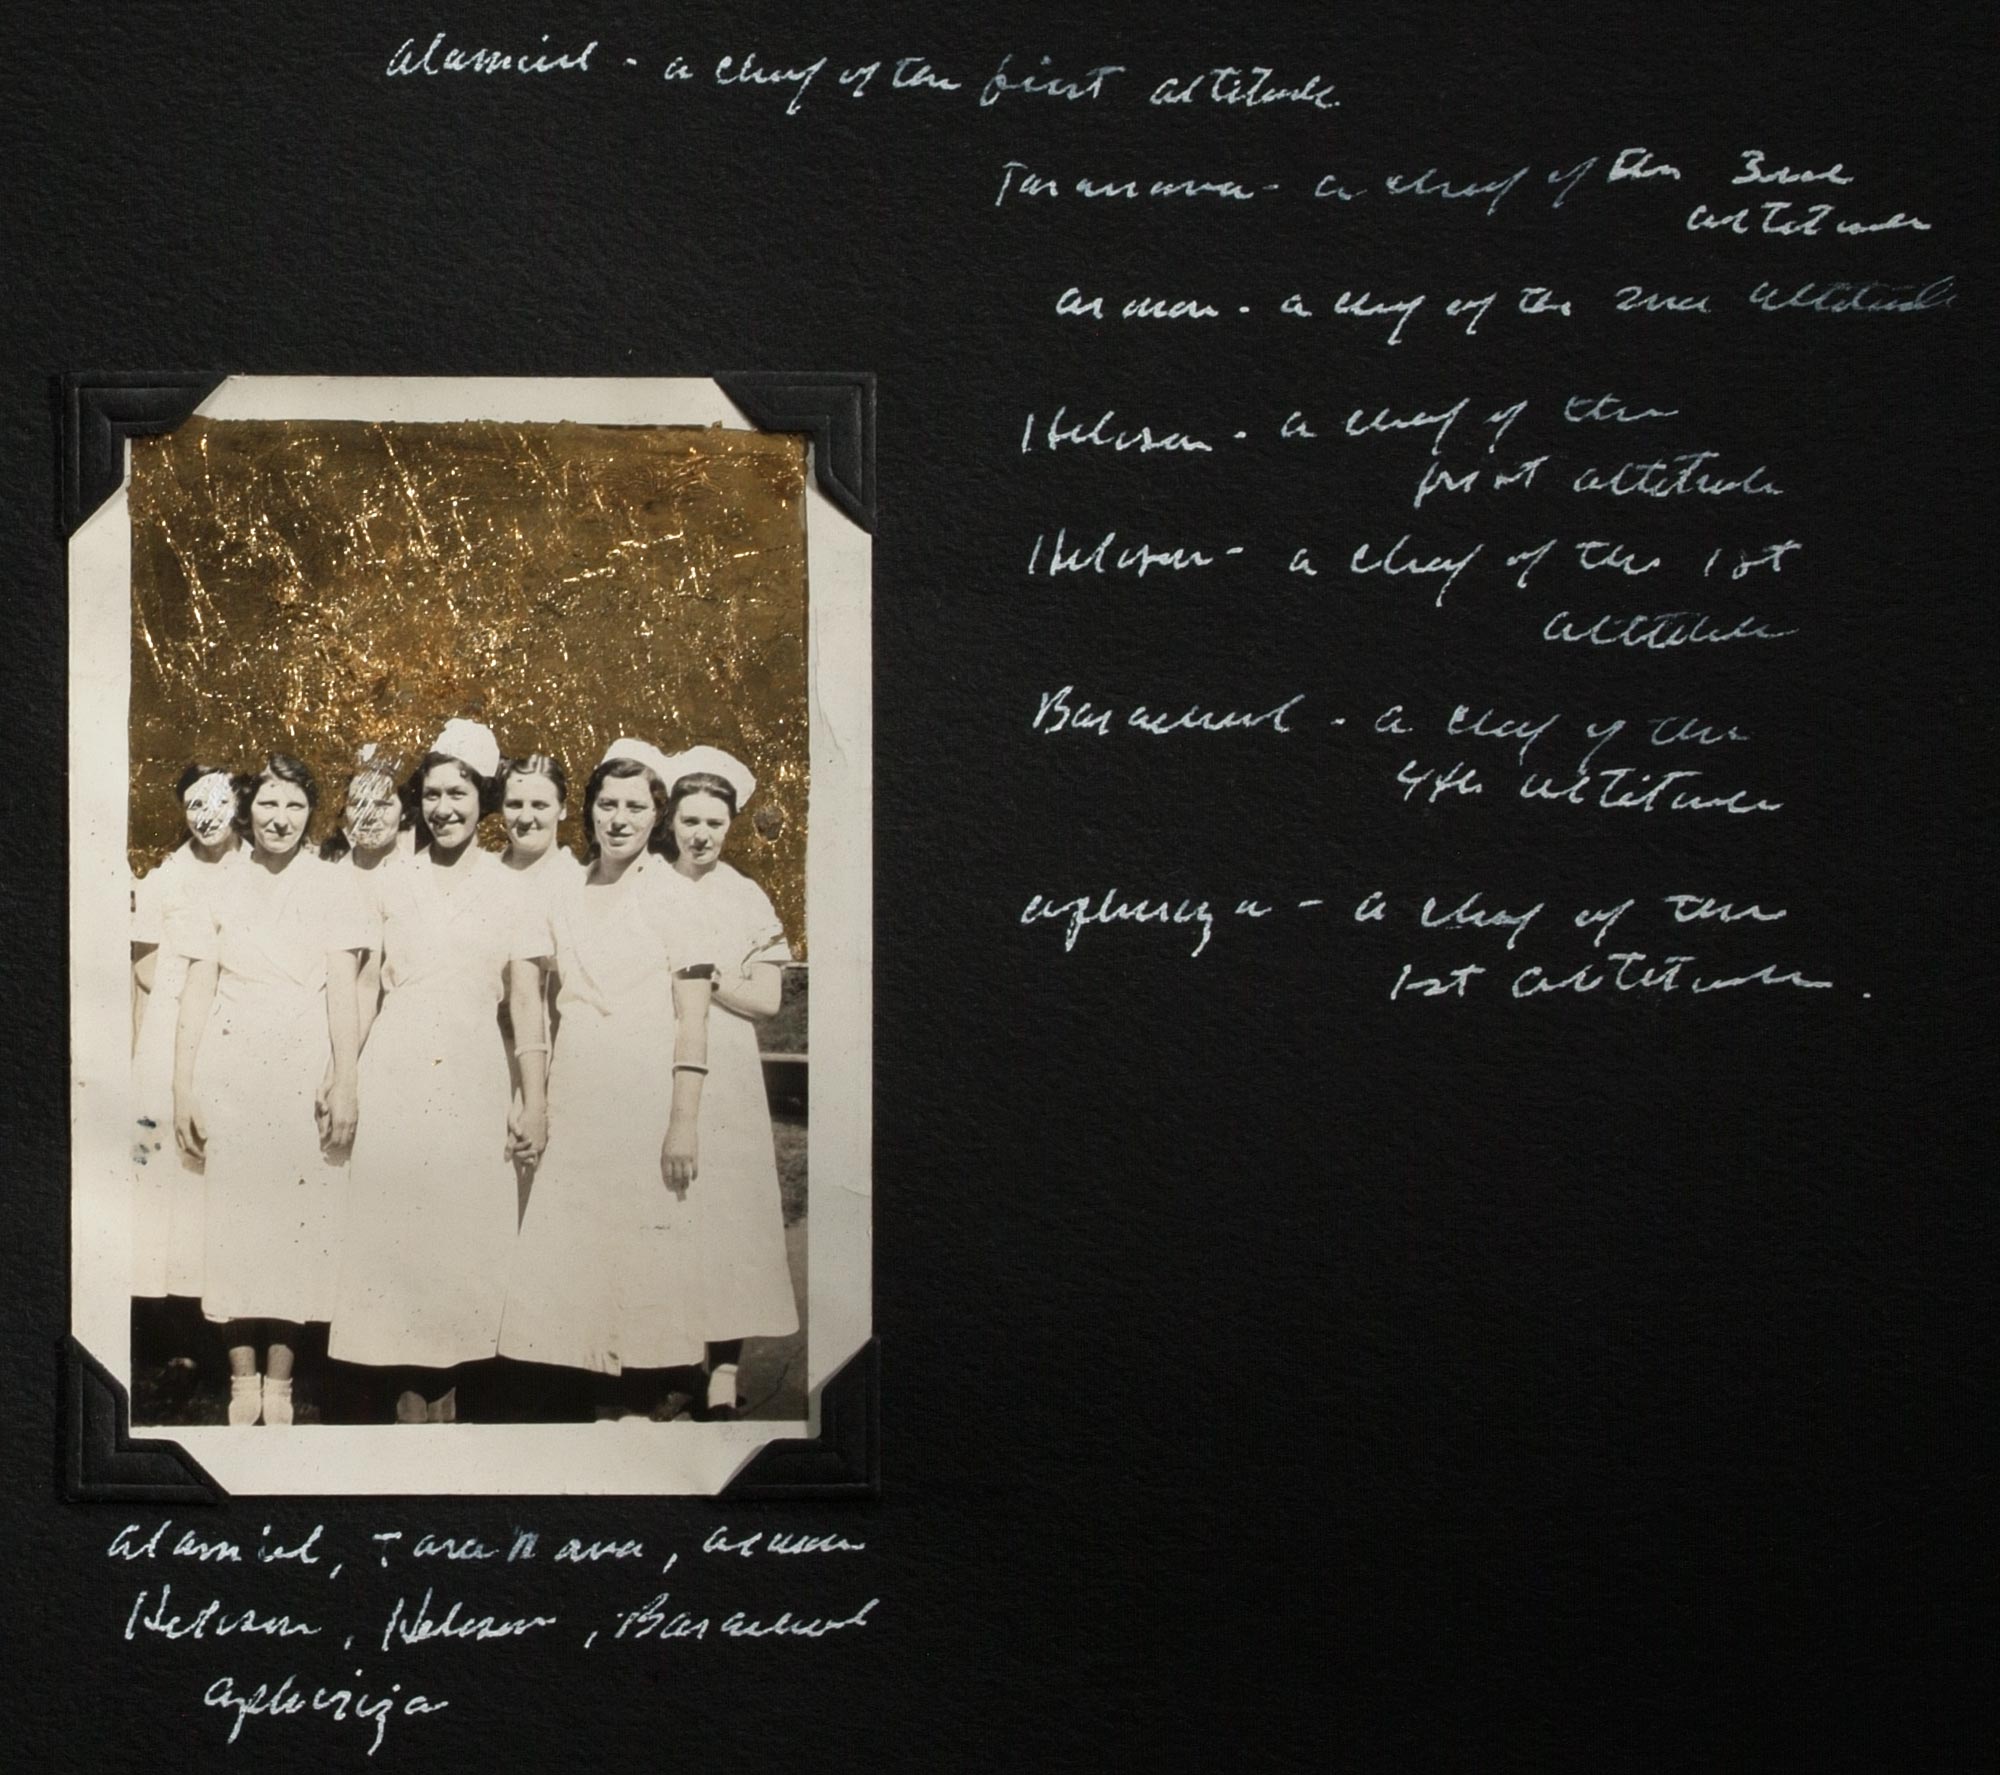 Alamiel - a chief of the first altitude.
Taranava - a chief of the 3rd
altitude
armon - a chief of the 2nd altitude
Helison - a chief of the
first altitude
Helison - a chief of the 1st
altitude
Barachiel - a chief of the
4th altitude
aphiriza - a chief of the
1st altitude.
alamiel, Taranava, armon
Helison, Helison, Barachiel
aphiriza